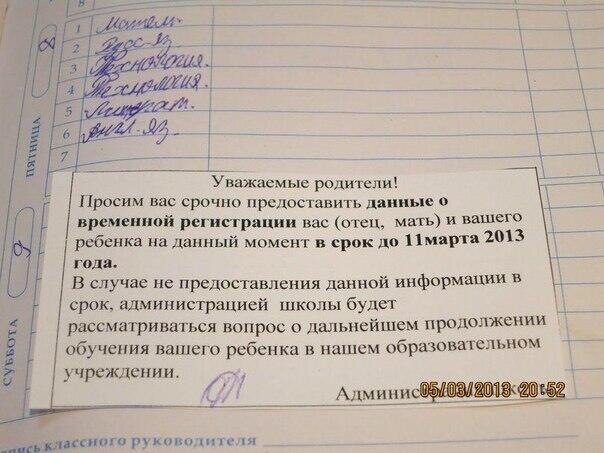 8
1 Матем.
2 Русс. яз
3 Технология.
4 Технология.
5 Литерат.
6 Англ. яз.
7
ПЯТНИЦА
Уважаемые родители!
Просим вас срочно предоставить данные о
временной регистрации вас (отец, мать) и вашего
ребенка на данный момент в срок до 11марта 2013
года.
В случае не предоставления данной информации в
срок, администрацией школы будет
рассматриваться вопрос о дальнейшем продолжении
обучения вашего ребенка в нашем образовательном
учреждении.
05/03/2013 20:52
9
СУББОТА
классного руководителя